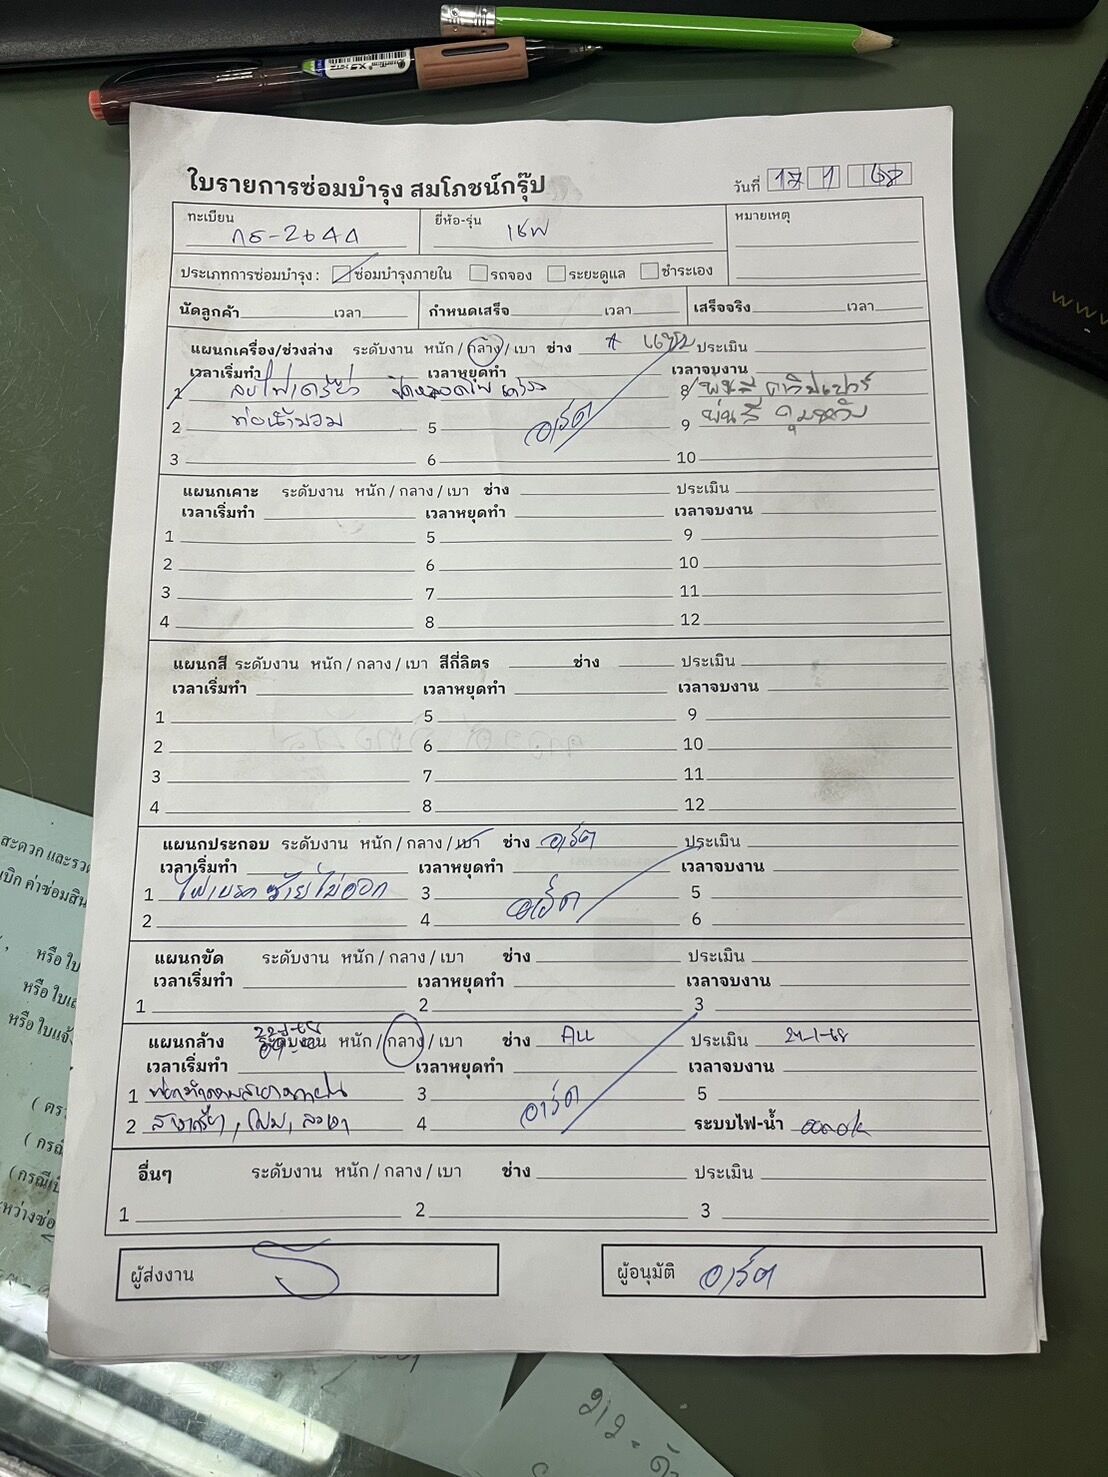 ใบรายการซ่อมบำรุง สมโภชน์กรุ๊ป
วันที่ 17 1 68
ทะเบียน
ยี่ห้อ-รุ่น เชฟ
หมายเหตุ
ประเภทการซ่อมบำรุง : ซ่อมบำรุงภายใน รถจอง ระยะดูแล ชำระเอง
นัดลูกค้า เวลา กำหนดเสร็จ เวลา เสร็จจริง เวลา
แผนกเครื่อง/ช่วงล่าง ระดับงาน หนัก / กลาง / เบา ช่าง ประเมิน
เวลาเริ่มทำ เวลาหยุดทำ เวลาจบงาน
1 8
2 ท่อน้ำ 5 อาร์ต 9 พ่นสี
3 6 10
แผนกเคาะ ระดับงาน หนัก / กลาง / เบา ช่าง ประเมิน
เวลาเริ่มทำ เวลาหยุดทำ เวลาจบงาน
1 5 9
2 6 10
3 7 11
4 8 12
แผนกสี ระดับงาน หนัก / กลาง / เบา สีกี่ลิตร ช่าง ประเมิน
เวลาเริ่มทำ เวลาหยุดทำ เวลาจบงาน
1 5 9
2 6 10
3 7 11
4 8 12
แผนกประกอบ ระดับงาน หนัก / กลาง / เบา ช่าง อาร์ต ประเมิน
เวลาเริ่มทำ เวลาหยุดทำ เวลาจบงาน
1 ไฟเบรคซ้ายไม่ออก 3 5
2 4 อาร์ต 6
แผนกขัด ระดับงาน หนัก / กลาง / เบา ช่าง ประเมิน
เวลาเริ่มทำ เวลาหยุดทำ เวลาจบงาน
1 2 3
แผนกล้าง ระดับงาน หนัก / กลาง / เบา ช่าง ประเมิน
เวลาเริ่มทำ เวลาหยุดทำ เวลาจบงาน
1 3 5
2 4 อาร์ต ระบบไฟ-น้ำ
อื่นๆ ระดับงาน หนัก / กลาง / เบา ช่าง ประเมิน
1 2 3
ผู้ส่งงาน
ผู้อนุมัติ อาร์ต